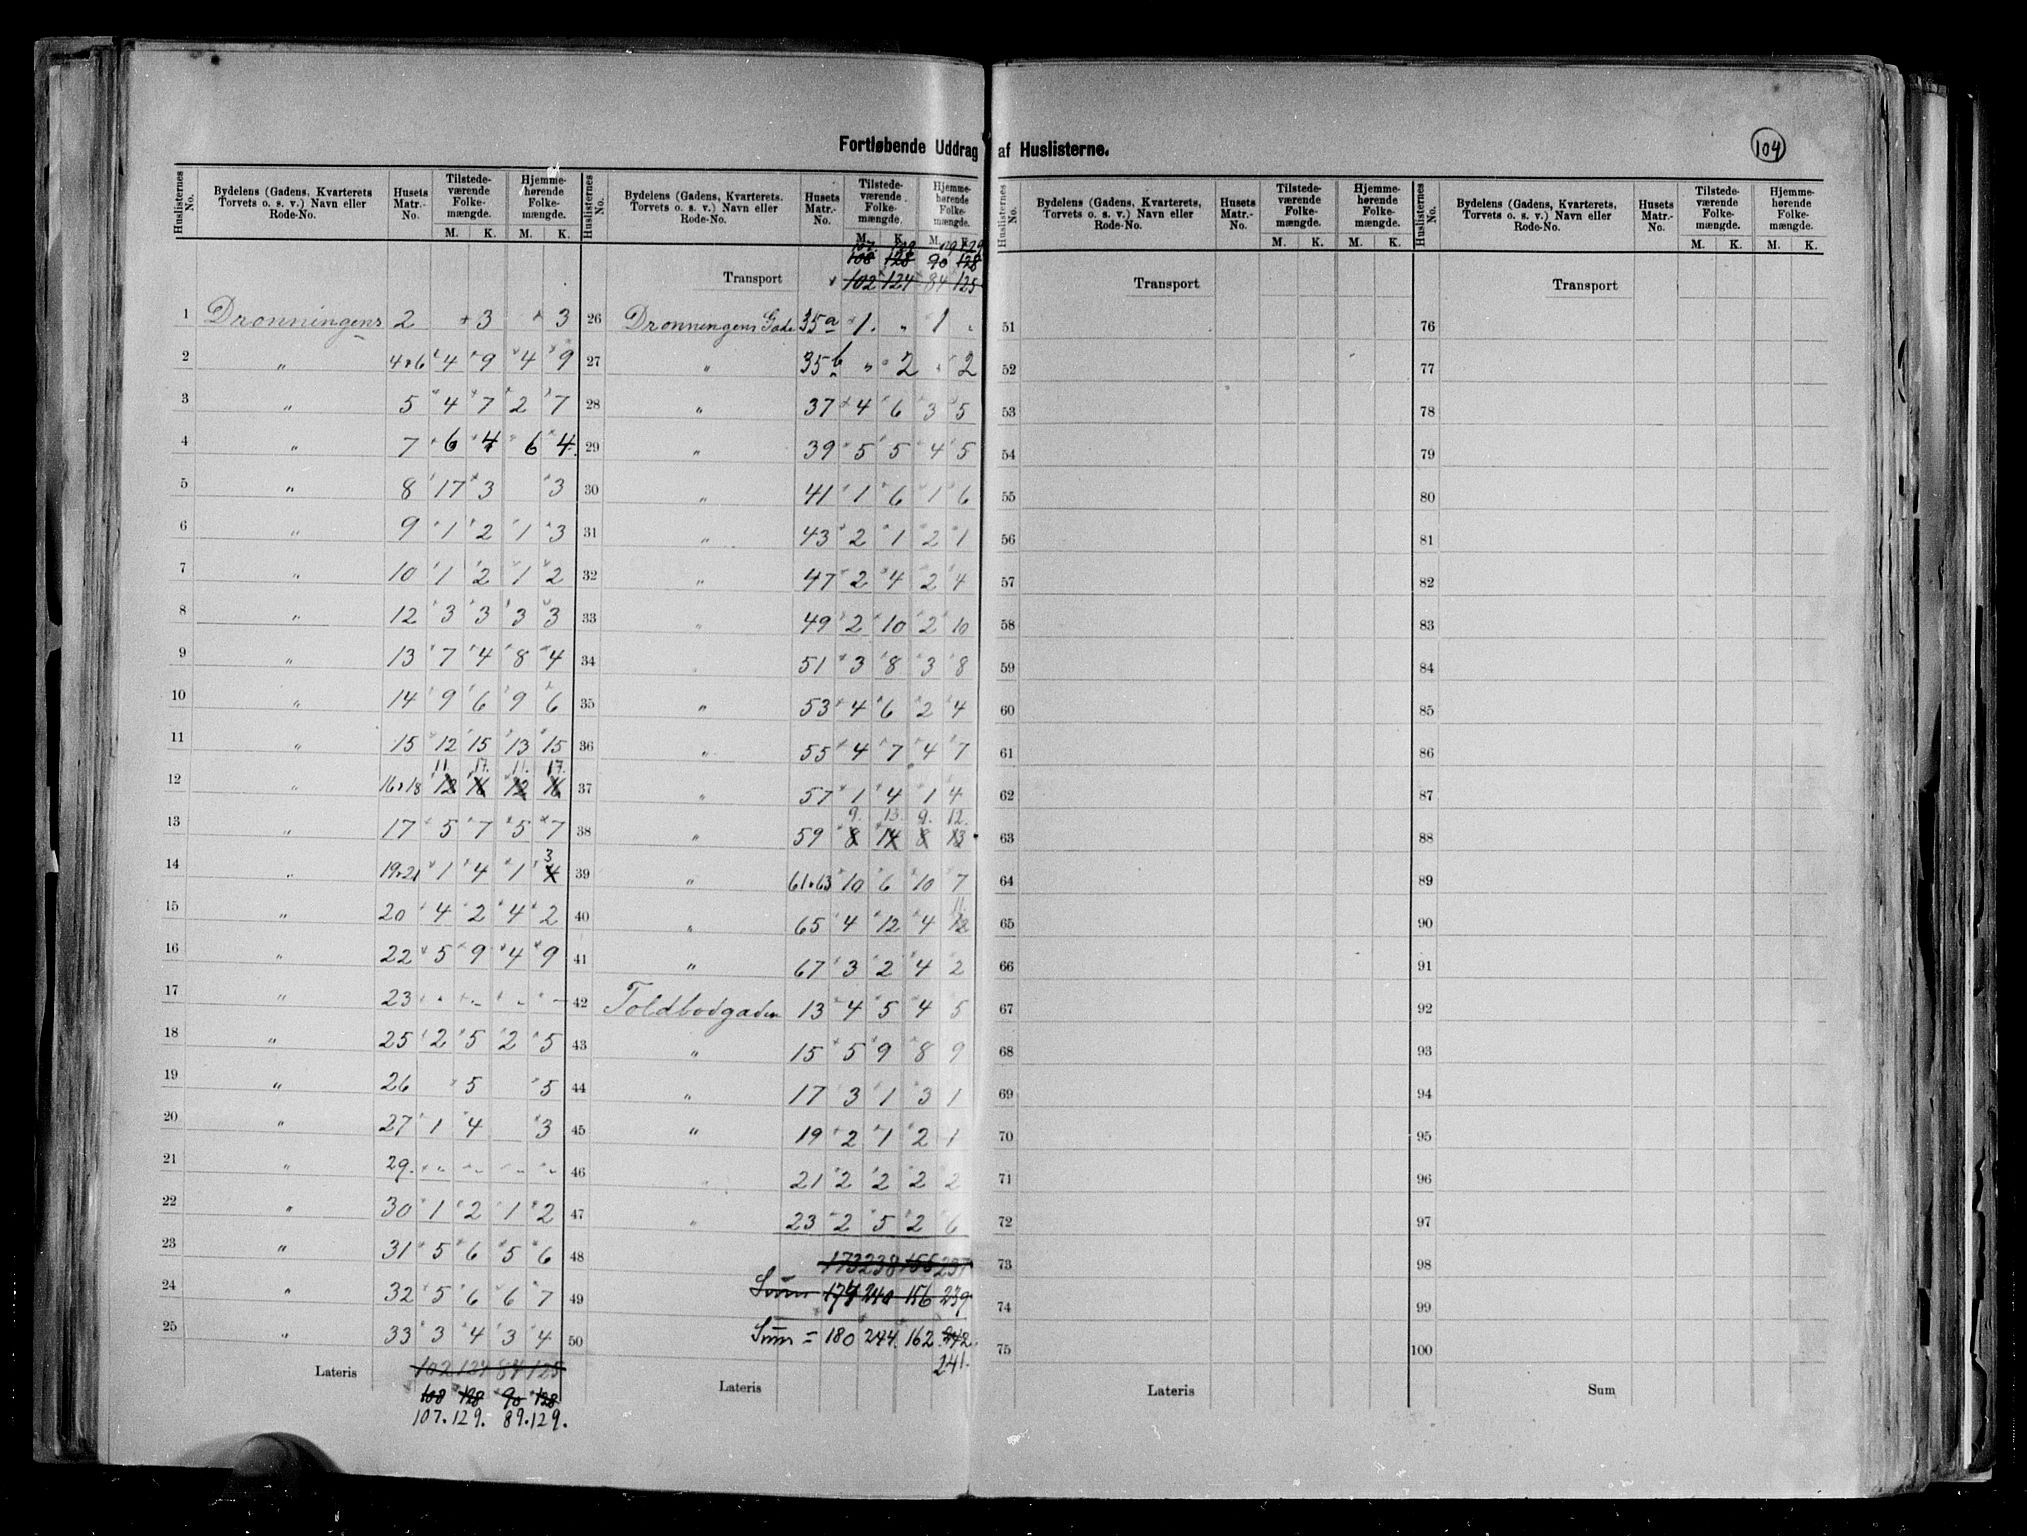 Fortløbende Uddrag af Huslisterne.
104
Huslisternes No. | Bydelens (Gadens, Kvarterets Torvets o. s. v.) Navn eller Rode-No. | Husets Matr.-No. | Tilstedeværende Folkemængde. M. K. | Hjemmehørende Folkemængde. M. K.
1 Dronningens 2 3 3
2 " 4&6 4 9 4 9
3 " 5 4 7 2 7
4 " 7 6 4 6 4
5 " 8 17 3 3
6 " 9 1 2 1 3
7 " 10 1 2 1 2
8 " 12 3 3 3 3
9 " 13 7 4 8 4
10 " 14 9 6 9 6
11 " 15 12 15 13 15
11. 17. 11. 17.
12 " 16&18 12 16 12 16
13 " 17 5 7 5 7
3
14 " 19&21 1 4 1 4
15 " 20 4 2 4 2
16 " 22 5 9 4 9
17 " 23 - - - -
18 " 25 2 5 2 5
19 " 26 5 5
20 " 27 1 4 3
21 " 29 - - - -
22 " 30 1 2 1 2
23 " 31 5 6 5 6
24 " 32 5 6 6 7
25 " 33 3 4 3 4
Lateris 102 124 84 125
108 128 90 128
107. 129. 89. 129.
Huslisternes No. | Bydelens (Gadens, Kvarterets. Torvets o. s. v.) Navn eller Rode-No. | Husets Matr.-No. | Tilstedeværende Folkemængde. M. K. | Hjemmehørende Folkemængde. M. K.
107. 129 89 129
108 128 90 128
Transport 102 124 84 125
26 Dronningens Gade 35a 1. " 1 "
27 " 35b " 2 2
28 " 37 4 6 3 5
29 " 39 5 5 4 5
30 " 41 1 6 1 6
31 " 43 2 1 2 1
32 " 47 2 4 2 4
33 " 49 2 10 2 10
34 51 3 8 3 8
35 " 53 4 6 2 4
36 " 55 4 7 4 7
37 " 57 1 4 1 4
9. 13. 9. 12.
38 " 59 8 14 8 13
39 " 61&63 10 6 10 7
11.
40 " 65 4 12 4 12
41 " 67 3 2 4 2
42 Toldbodgaden 13 4 5 4 5
43 " 15 5 9 8 9
44 " 17 3 1 3 1
45 " 19 2 1 2 1
46 " 21 2 2 2 2
47 " 23 2 5 2 6
48 173 238 155 237
49 Sum 174 240 156 239
50 Sum = 180 244. 162. 242.
241.
Lateris
Huslisternes No. | Bydelens (Gadens, Kvarterets, Torvets o. s. v.) Navn eller Rode-No. | Husets Matr.-No. | Tilstedeværende Folkemængde. M. K. | Hjemmehørende Folkemængde. M. K.
Transport
51
52
53
54
55
56
57
58
59
60
61
62
63
64
65
66
67
68
69
70
71
72
73
74
75
Lateris
Huslisternes No. | Bydelens (Gadens, Kvarterets, Torvets o. s. v.) Navn eller Rode-No. | Husets Matr.-No. | Tilstedeværende Folkemængde. M. K. | Hjemmehørende Folkemængde. M. K.
Transport
76
77
78
79
80
81
82
83
84
85
86
87
88
89
90
91
92
93
94
95
96
97
98
99
100
Sum